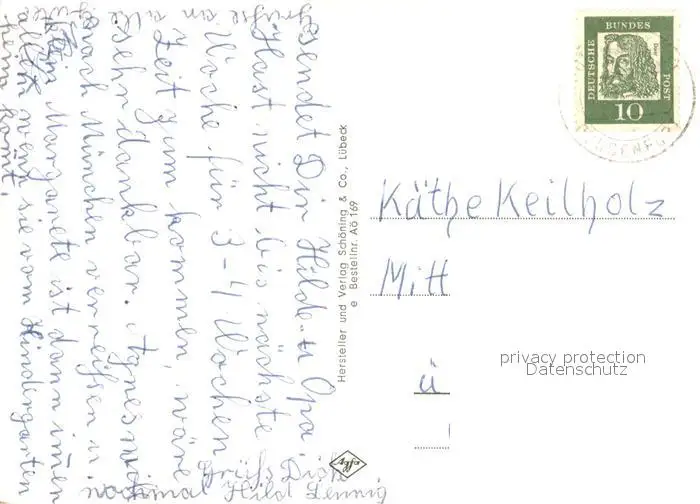 sendet Dir Hilde u Opa
Hast nicht bis nächste
Woche für 3-4 Wochen
Zeit zum kommen, wäre
sehr dankbar. Agnes
nach München verreisen u
Margarete ist dann immer
allein wenn sie vom Kindergarten
heim kommt.
Grüße an alle
Grüß Dich
nochmal Hild
Hersteller und Verlag Schöning & Co., Lübeck
e Bestellnr. Aö 169
Agfa
DEUTSCHE
BUNDES
POST
Dürer
10
Käthe Keilholz
Mitt
ü
privacy protection
Datenschutz